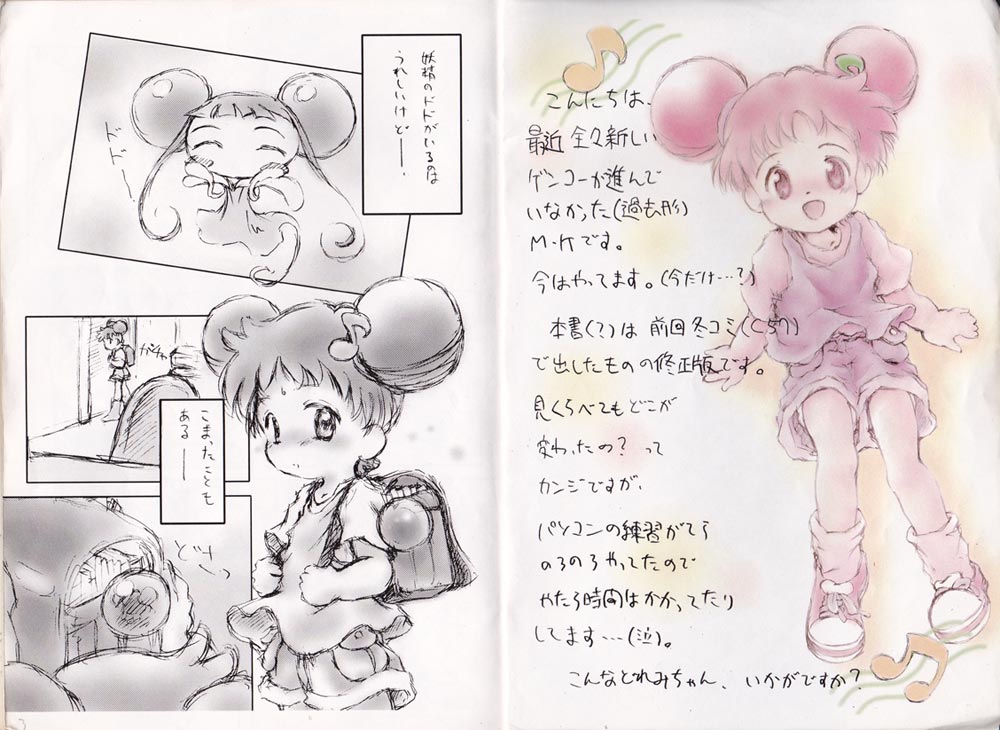 こんにちは、
最近 全々新しい
ゲンコーが進んで
いなかった(過去形)
M・Kです。
今はやってます。(今だけ…?)
本書(?)は 前回冬コミ(C57)
で出したものの修正版です。
見くらべてもどこが
変わったの? って
カンジですが、
パソコンの練習がてら
のろのろやってたので
やたら時間はかかってたり
してます…(泣)。
こんなどれみちゃん、いかがですか?
妖精のドドがいるのは
うれしいけど――.
ドドー
ガチャ
こまったことも
ある――
3